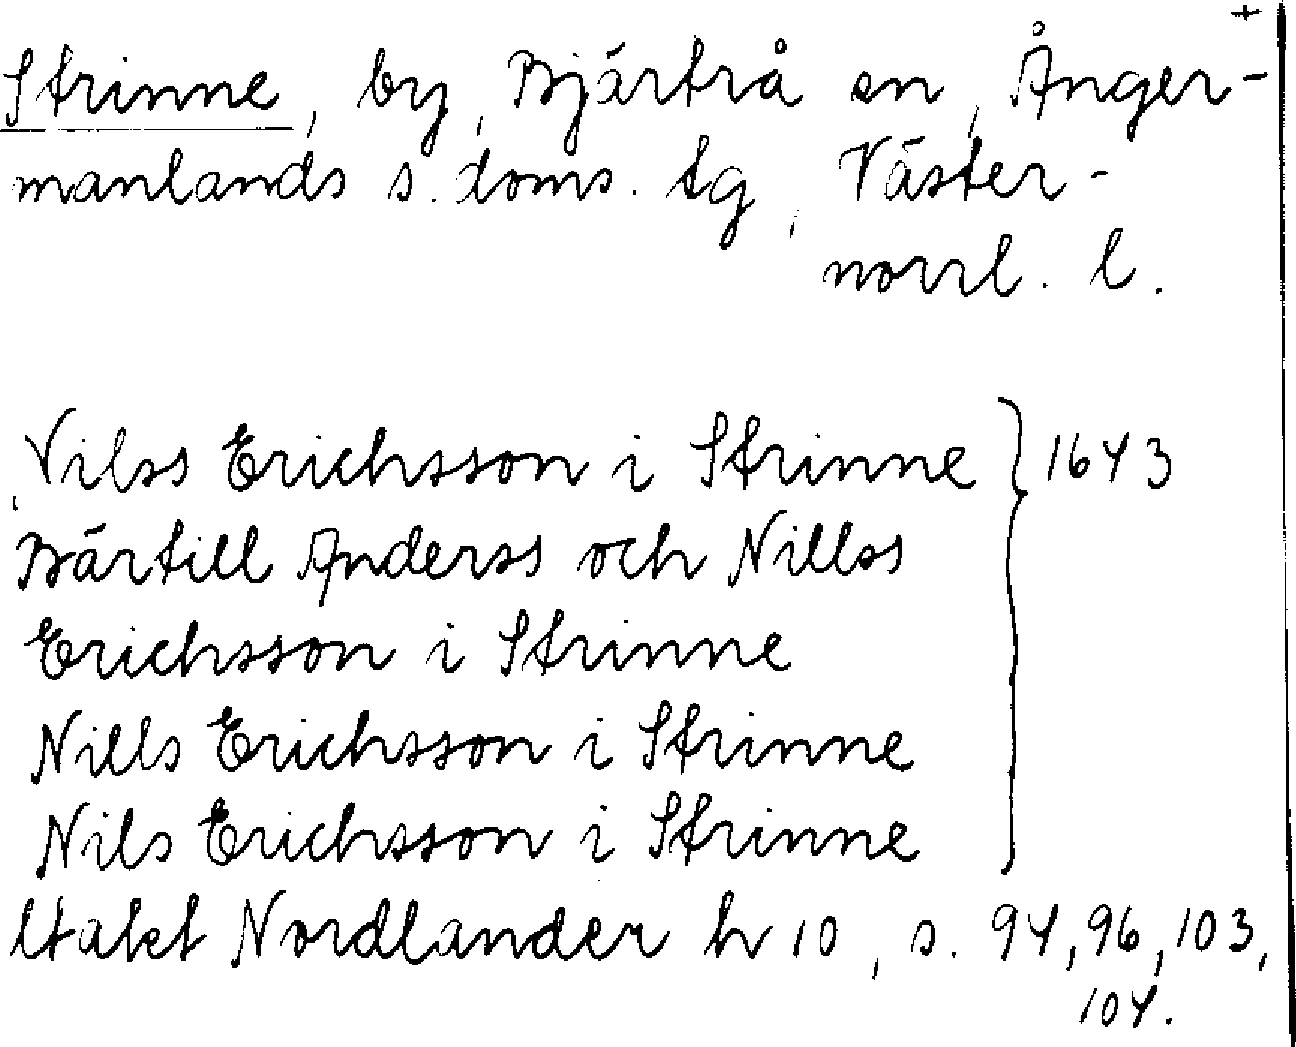 +
Strinne, by, Bjärtrå sn, Ånger-
manlands s. doms. tg, Väster-
norrl. l.
Nilss Erichsson i Strinne } 1643
Bärtill Anderss och Nillss
Erichsson i Strinne
Nills Erichsson i Strinne
Nils Erichsson i Strinne
Nordlander h 10, s. 94, 96, 103,
104.